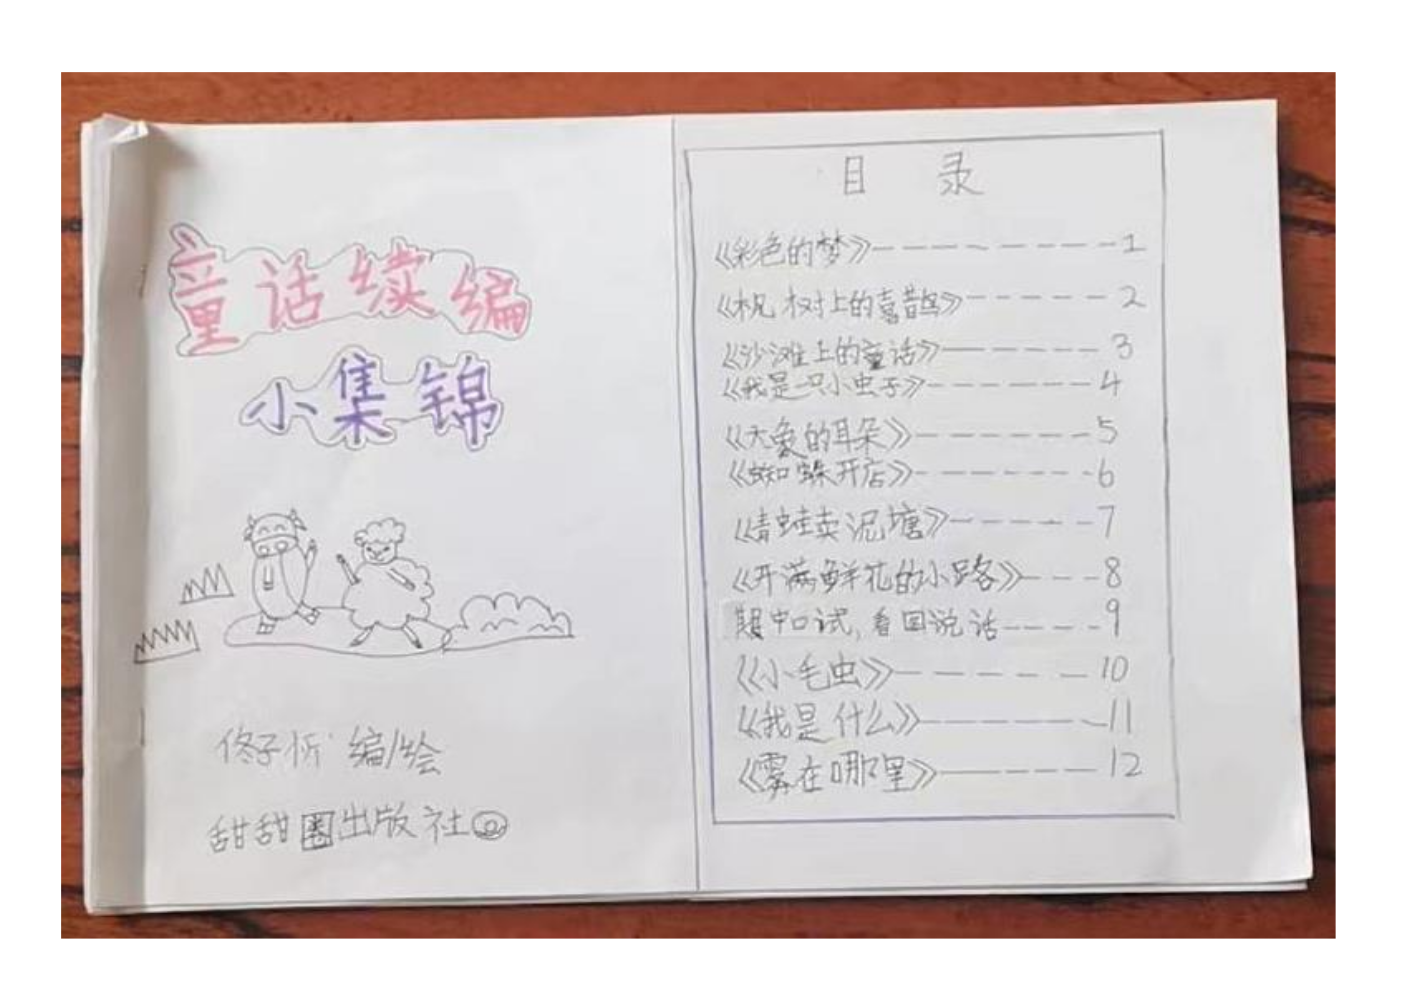 童话续编
小集锦
佟子忻 编/绘
甜甜圈出版社
目 录
《彩色的梦》---------1
《枫树上的喜鹊》------2
《沙滩上的童话》------3
《我是一只小虫子》------4
《大象的耳朵》------5
《蜘蛛开店》------6
《青蛙卖泥塘》-----7
《开满鲜花的小路》---8
期中口试,看图说话-----9
《小毛虫》------10
《我是什么》------11
《雾在哪里》------12